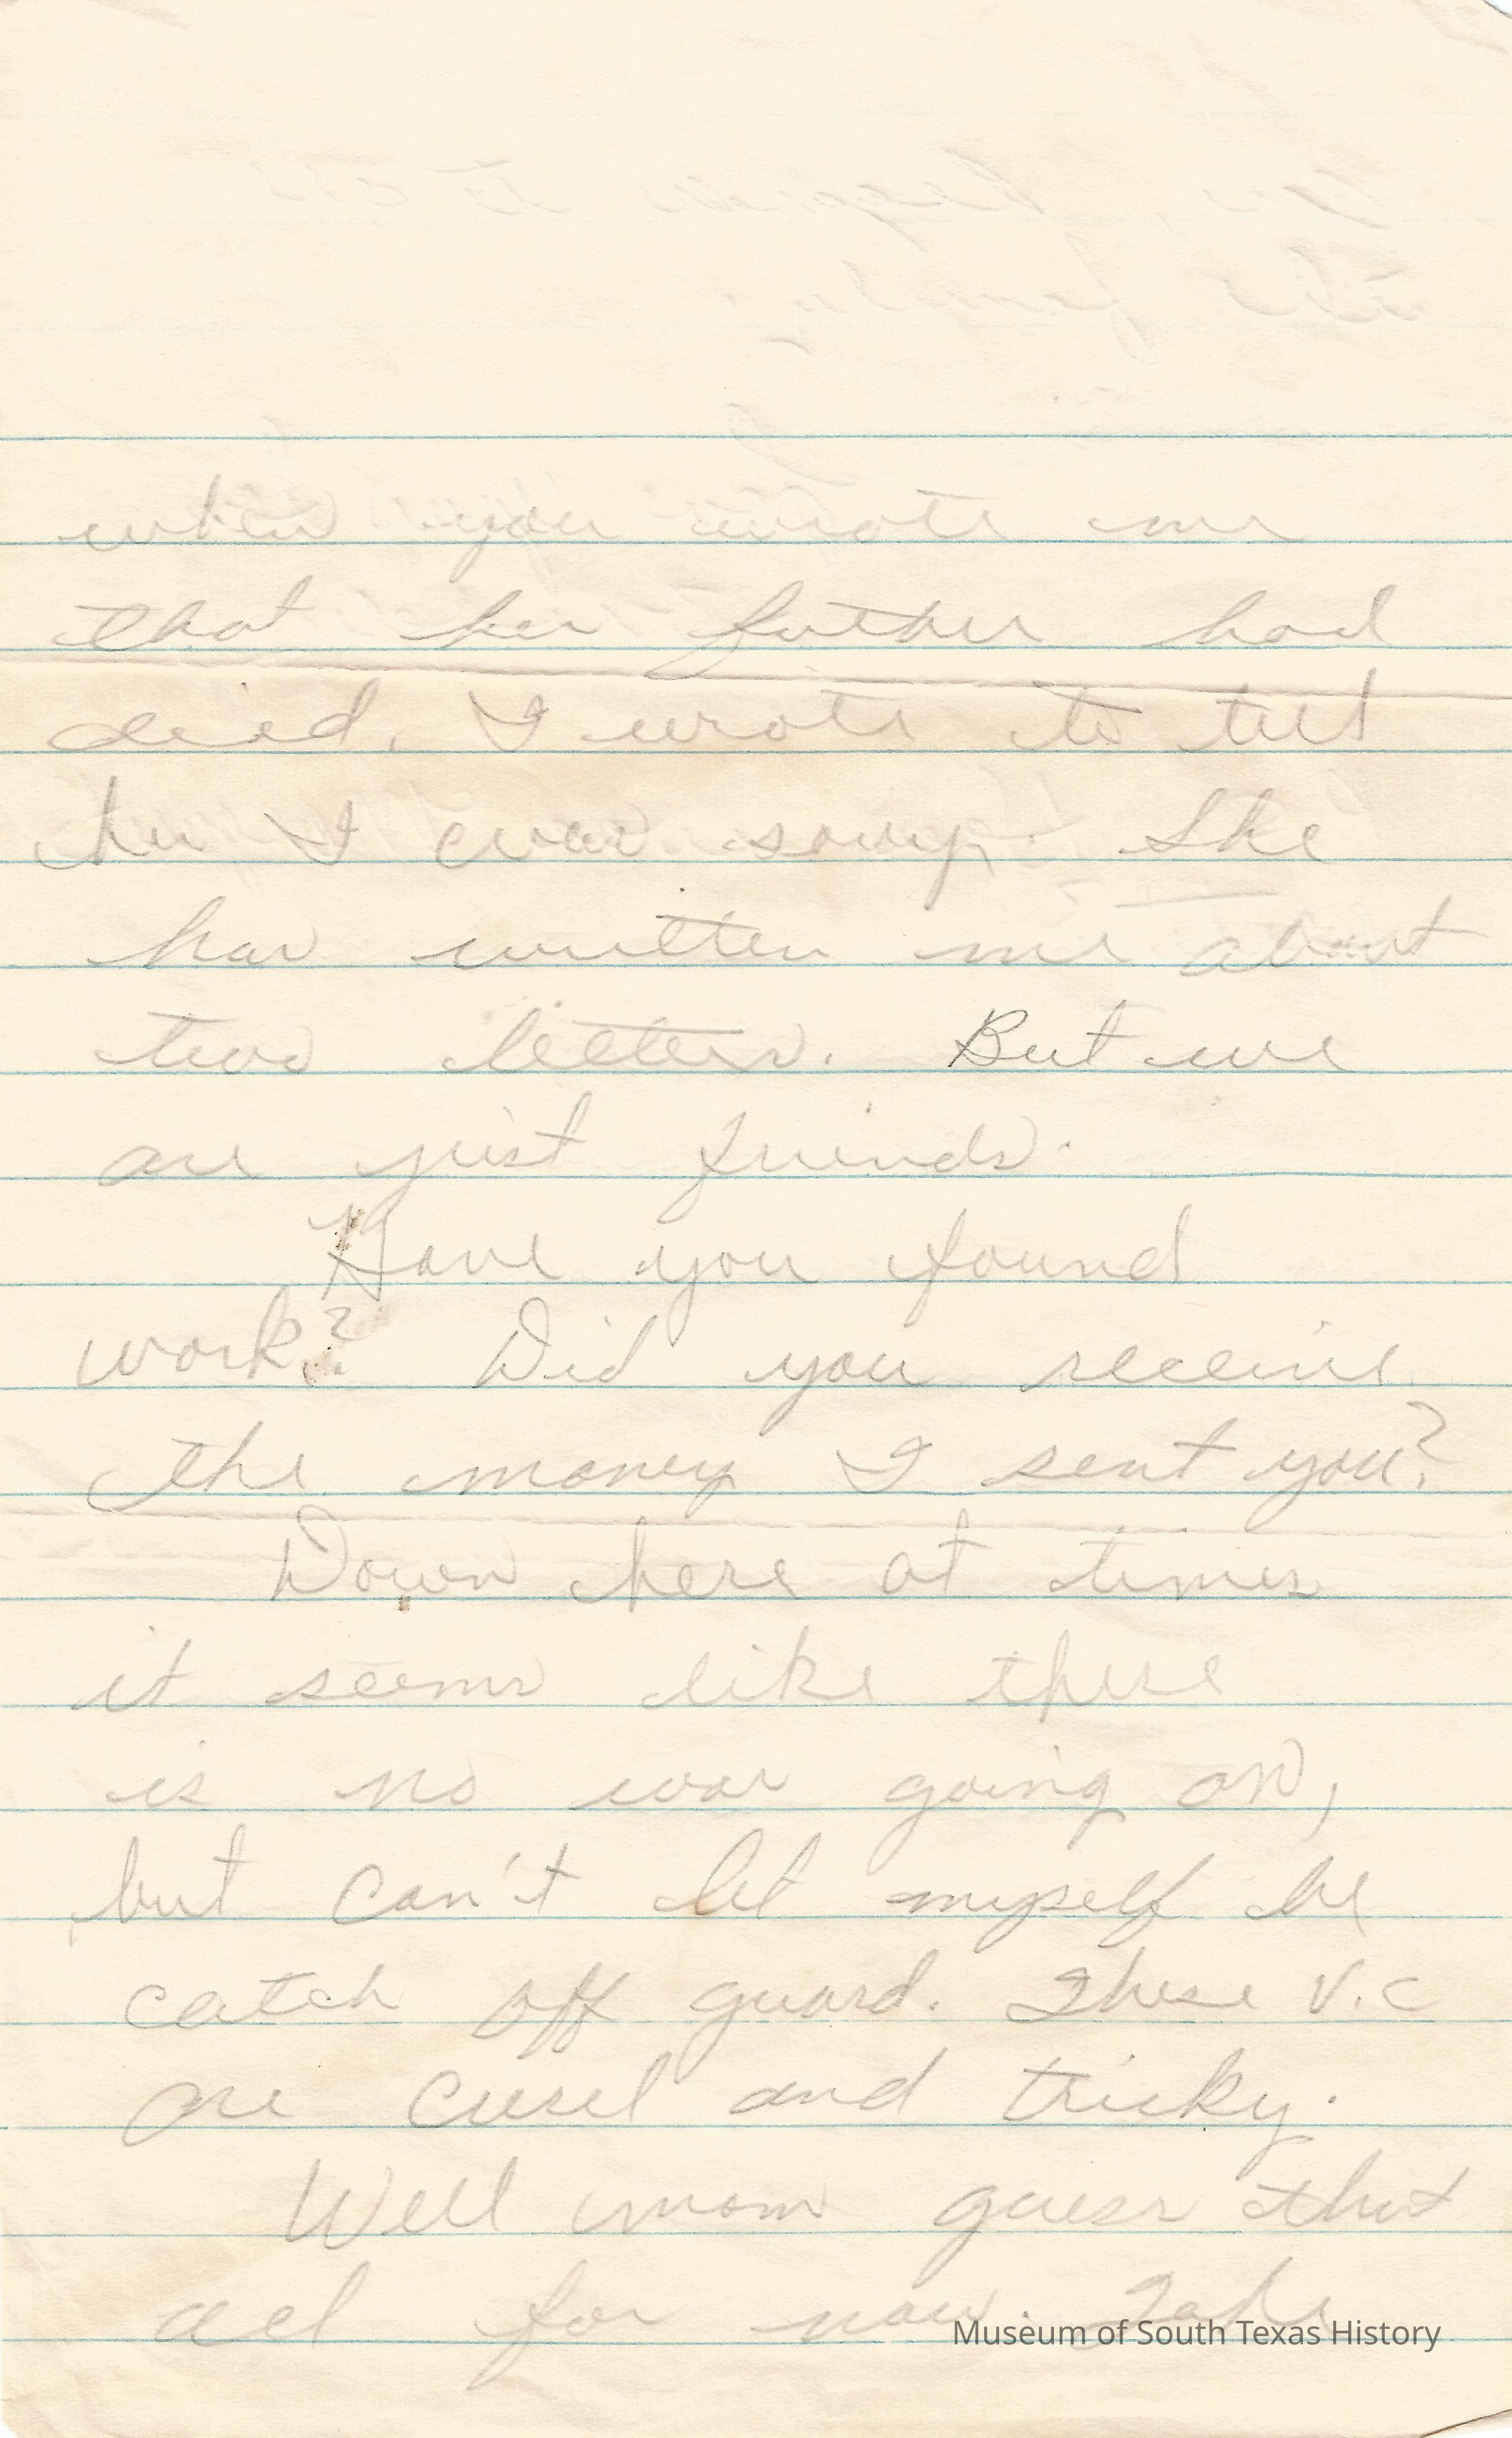 when you wrote me
that her father had
died. I wrote to tell
her I was sorry. She
has written me about
two letters. But we
are just friends.
Have you found
work? Did you receive
the money I sent you?
Down here at times
it seems like there
is no war going on,
but can't let myself be
catch off guard. These V.C
are cruel and tricky.
Well mom guess that
all for now. Take
Museum of South Texas History